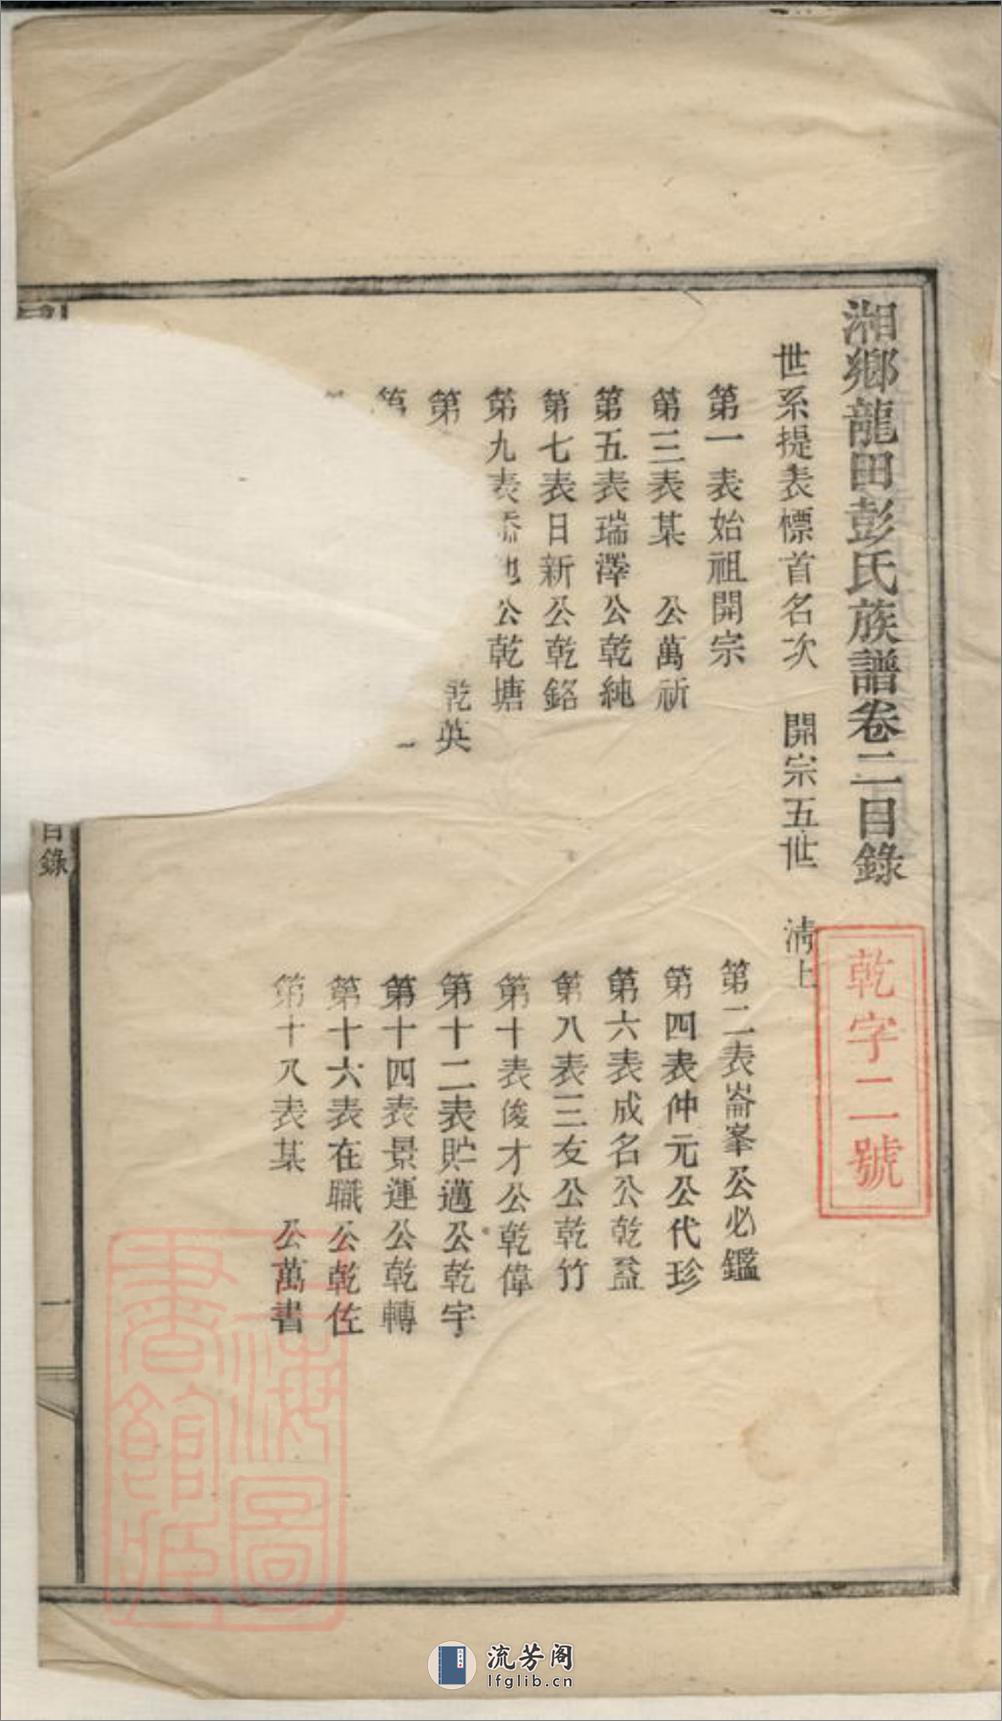 湘鄉龍田彭氏族譜卷二目錄
乾字二號
世系提表標首名次　開宗五世　淸上
第一表始祖開宗
第二表崙峯公必鑑
第三表某　公萬祈
第四表仲元公代珍
第五表瑞澤公乾純
第六表成名公乾益
第七表日新公乾銘
第八表三友公乾竹
第九表　　公乾塘
第十表俊才公乾偉
第　　乾英
第十二表貯邁公乾宇
第
第十四表景運公乾轉
第十六表在職公乾佐
第十八表某　公萬書
目錄
一
上海圖書館藏
流芳阁
lfglib.cn